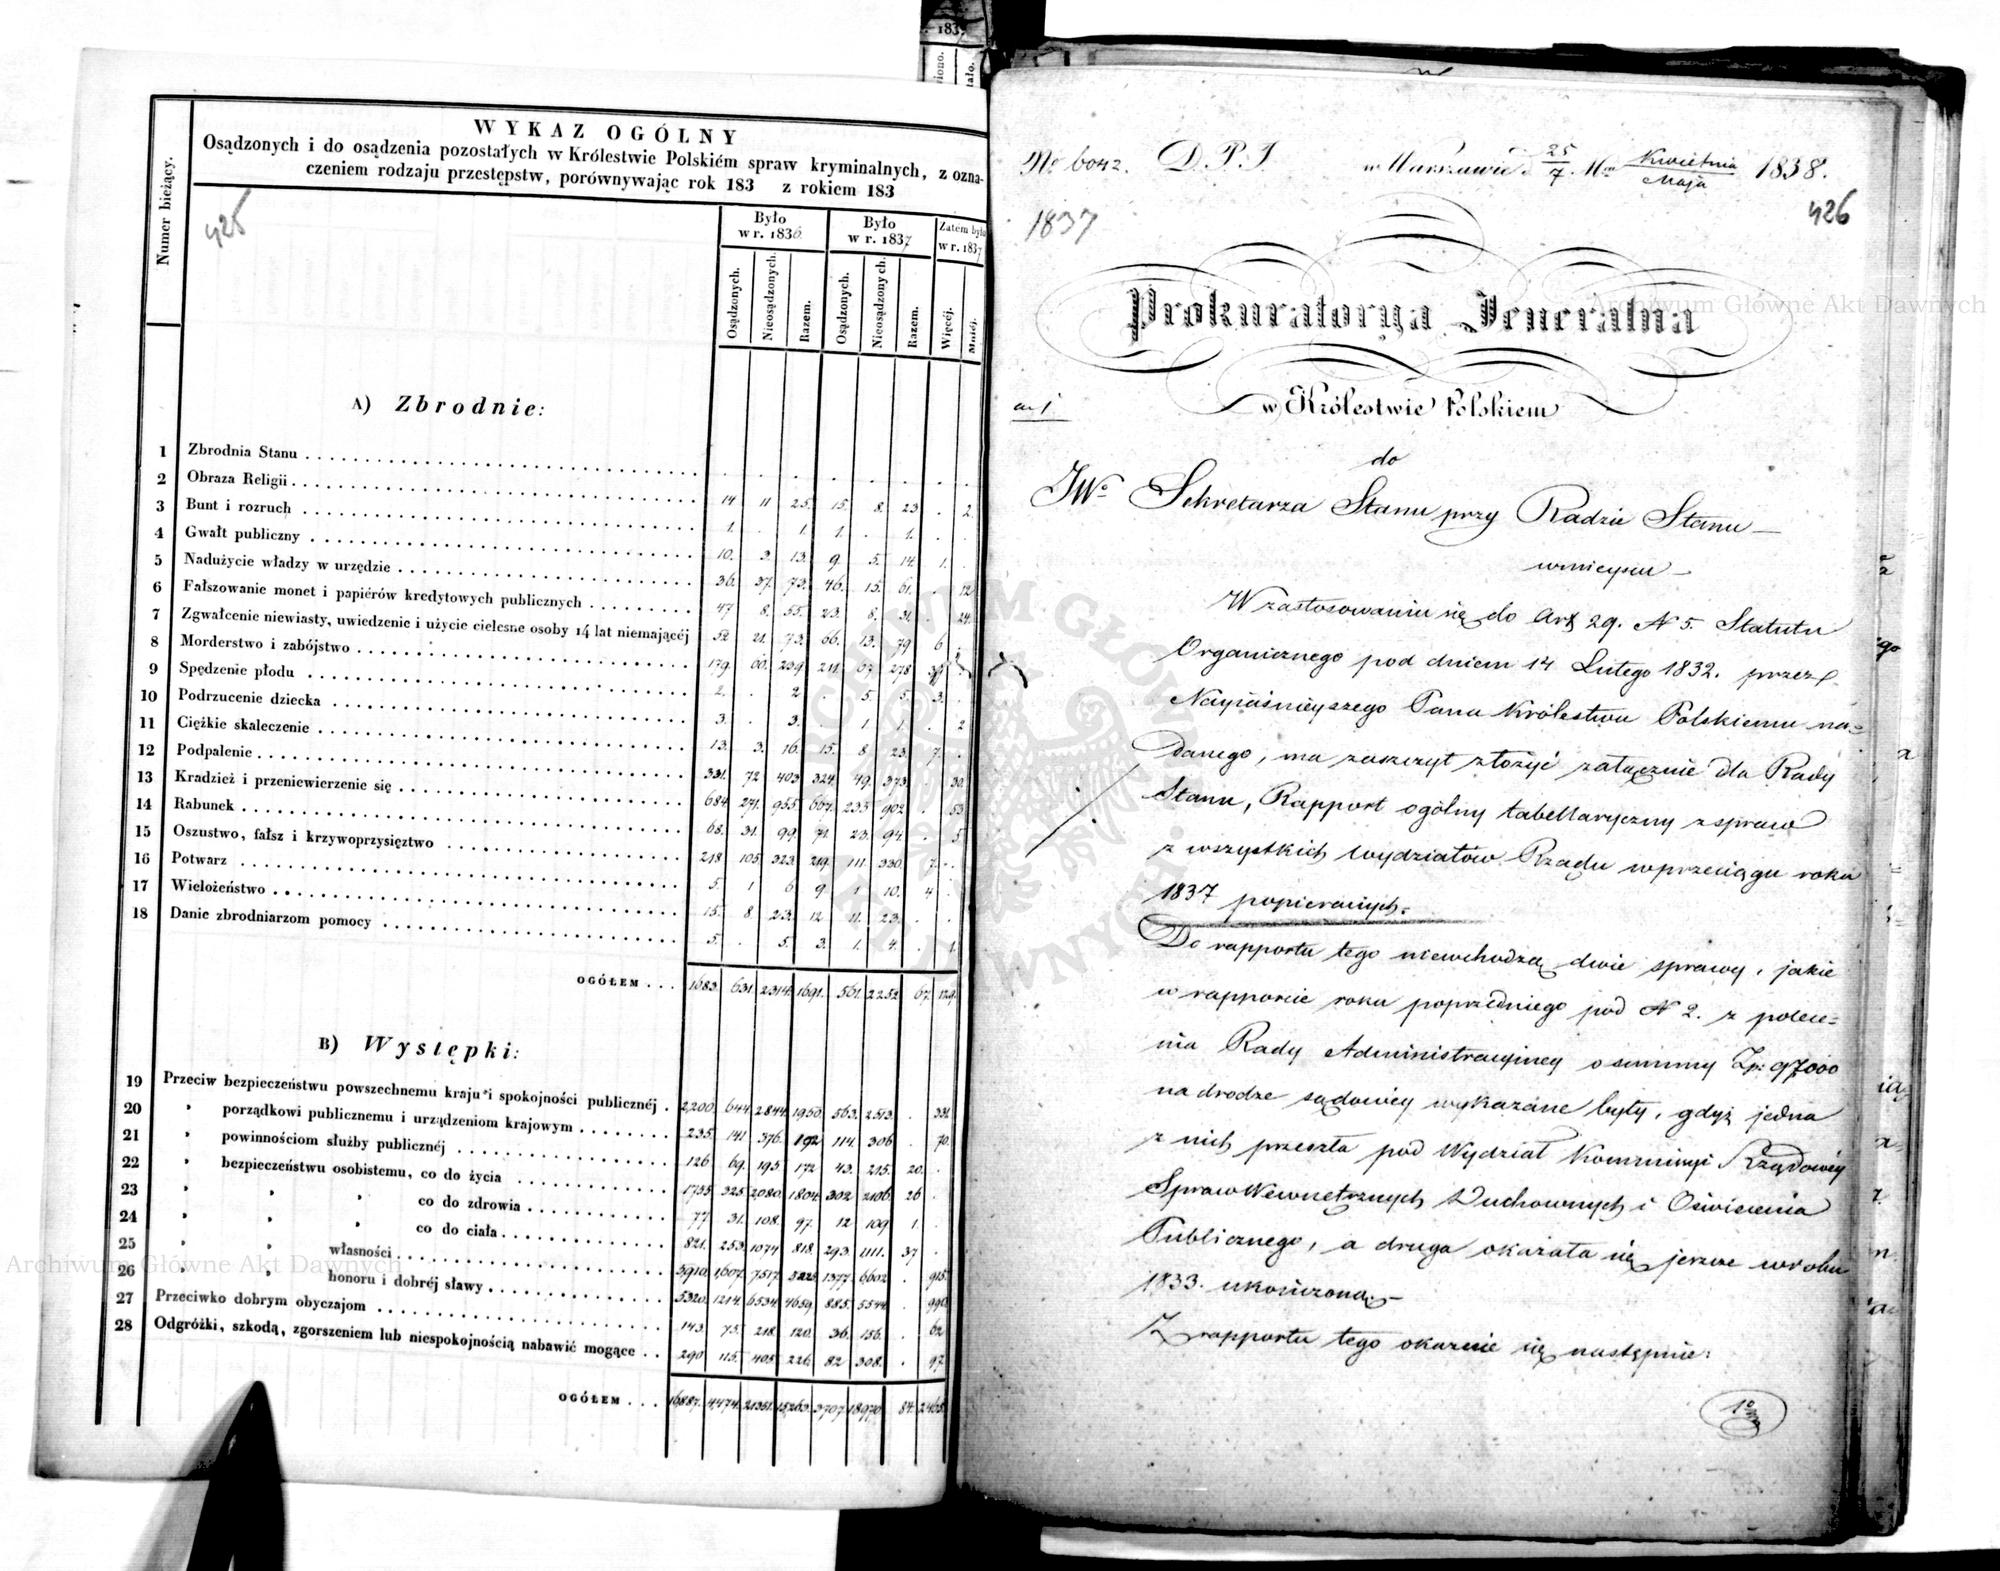 WYKAZ OGÓLNY
Osądzonych i do osądzenia pozostałych w Królestwie Polskiém spraw kryminalnych, z ozna-
czeniem rodzaju przestępstw, porównywając rok 183 z rokiem 183
425
Numer bieżący.
Było w r. 1836. Było w r. 1837 Zatem było w r. 1837
Osądzonych. Nieosądzonych. Razem. Osądzonych. Nieosądzonych. Razem. Więcéj. Mniéj.
A) Zbrodnie:
1 Zbrodnia Stanu
2 Obraza Religii 14 11 25. 15. 8. 23 . 2.
3 Bunt i rozruch 1. . 1. 1. . 1. . .
4 Gwałt publiczny 10. 3. 13. 9. 5. 14. 1. .
5 Nadużycie władzy w urzędzie 36. 37. 73. 46. 15. 61. . 12
6 Fałszowanie monet i papiérów kredytowych publicznych 47 8. 55. 23. 8. 31. . 24.
7 Zgwałcenie niewiasty, uwiedzenie i użycie cielesne osoby 14 lat niemającéj 52 21. 73. 66. 13. 79 6 .
8 Morderstwo i zabójstwo 179. 60. 239. 211. 67. 278. 39. .
9 Spędzenie płodu 2. . 2 . 5. 5. 3. .
10 Podrzucenie dziecka 3. . 3. . 1 1. . 2
11 Ciężkie skaleczenie 13. 3. 16. 15. 8. 23. 7. .
12 Podpalenie 331. 72 403 324. 49. 373. . 30.
13 Kradzież i przeniewierzenie się 684. 271. 955. 667. 235 902. . 53.
14 Rabunek 68. 31. 99. 71. 23. 94. . 5.
15 Oszustwo, fałsz i krzywoprzysięztwo 218 105 323. 219. 111. 330. 7. .
16 Potwarz 5. 1 6. 9. 1 10. 4 .
17 Wielożeństwo 15. 8. 23. 12. 11. 23. . .
18 Danie zbrodniarzom pomocy 5. . 5. 3. 1. 4. . 1.
OGÓŁEM 1683. 631. 2314. 1691. 561. 2252 67. 129.
B) Występki:
19 Przeciw bezpieczeństwu powszechnemu kraju i spokojności publicznéj 2,200. 644. 2844. 1950. 563. 2513. . 331.
20 " porządkowi publicznemu i urządzeniom krajowym 235. 141. 376. 192 114. 306 . 70.
21 " powinnościom służby publicznéj 126 69. 195. 172 43. 215. 20. .
22 " bezpieczeństwu osobistemu, co do życia 1755 325 2080. 1804. 302 2106. 26 .
23 " " " co do zdrowia 77. 31. 108. 97. 12 109 1. .
24 " " " co do ciała 821. 253. 1074 818. 293. 1111. 37 .
25 " " własności 5910. 1607. 7517. 5225 1377. 6602 . 915.
26 " " honoru i dobréj sławy 5320. 1214. 6534. 4659. 885. 5544 . 990.
27 Przeciwko dobrym obyczajom 143. 75. 218. 120. 36. 156. . 62
28 Odgróżki, szkodą, zgorszeniem lub niespokojnością nabawić mogące 290 115. 405. 226. 82 308. . 97.
OGÓŁEM 16,887. 4474. 21351. 15,263. 3707. 18970. 84. 2465.
No 6042. D.P.J. w Warszawie d. 25/7 Mca Kwietnia/Maja 1838.
1837
426
Prokuratorya Jeneralna
w Królestwie Polskiem
do
JWo Sekretarza Stanu przy Radzie Stanu
w mieyscu
W zastosowaniu się do Art 29. N 5. Statutu
Organicznego pod dniem 14 Lutego 1832. przez
Nayiaśnieyszego Pana Królestwu Polskiemu na=
danego, ma zaszczyt złożyć załącznie dla Rady
Stanu, Rapport ogólny tabellaryczny z spraw
z wszystkich Wydziałów Rządu w przeciągu roku
1837 popieranych.
Do rapportu tego niewchodzą dwie sprawy, jakie
w rapporcie roku poprzedniego pod N 2. z polece=
nia Rady Administracyiney o summy Zp: 97000
na drodze sądowéy wykazane były, gdyż jedna
z nich przeszła pod Wydział Kommissyi Rządowéy
Spraw Wewnętrznych Duchownych i Oświecenia
Publicznego, a druga okazała się jeszcze w roku
1833. ukończoną.
Z rapportu tego okazuie się następnie:
Archiwum Główne Akt Dawnych
Archiwum Główne Akt Dawnych